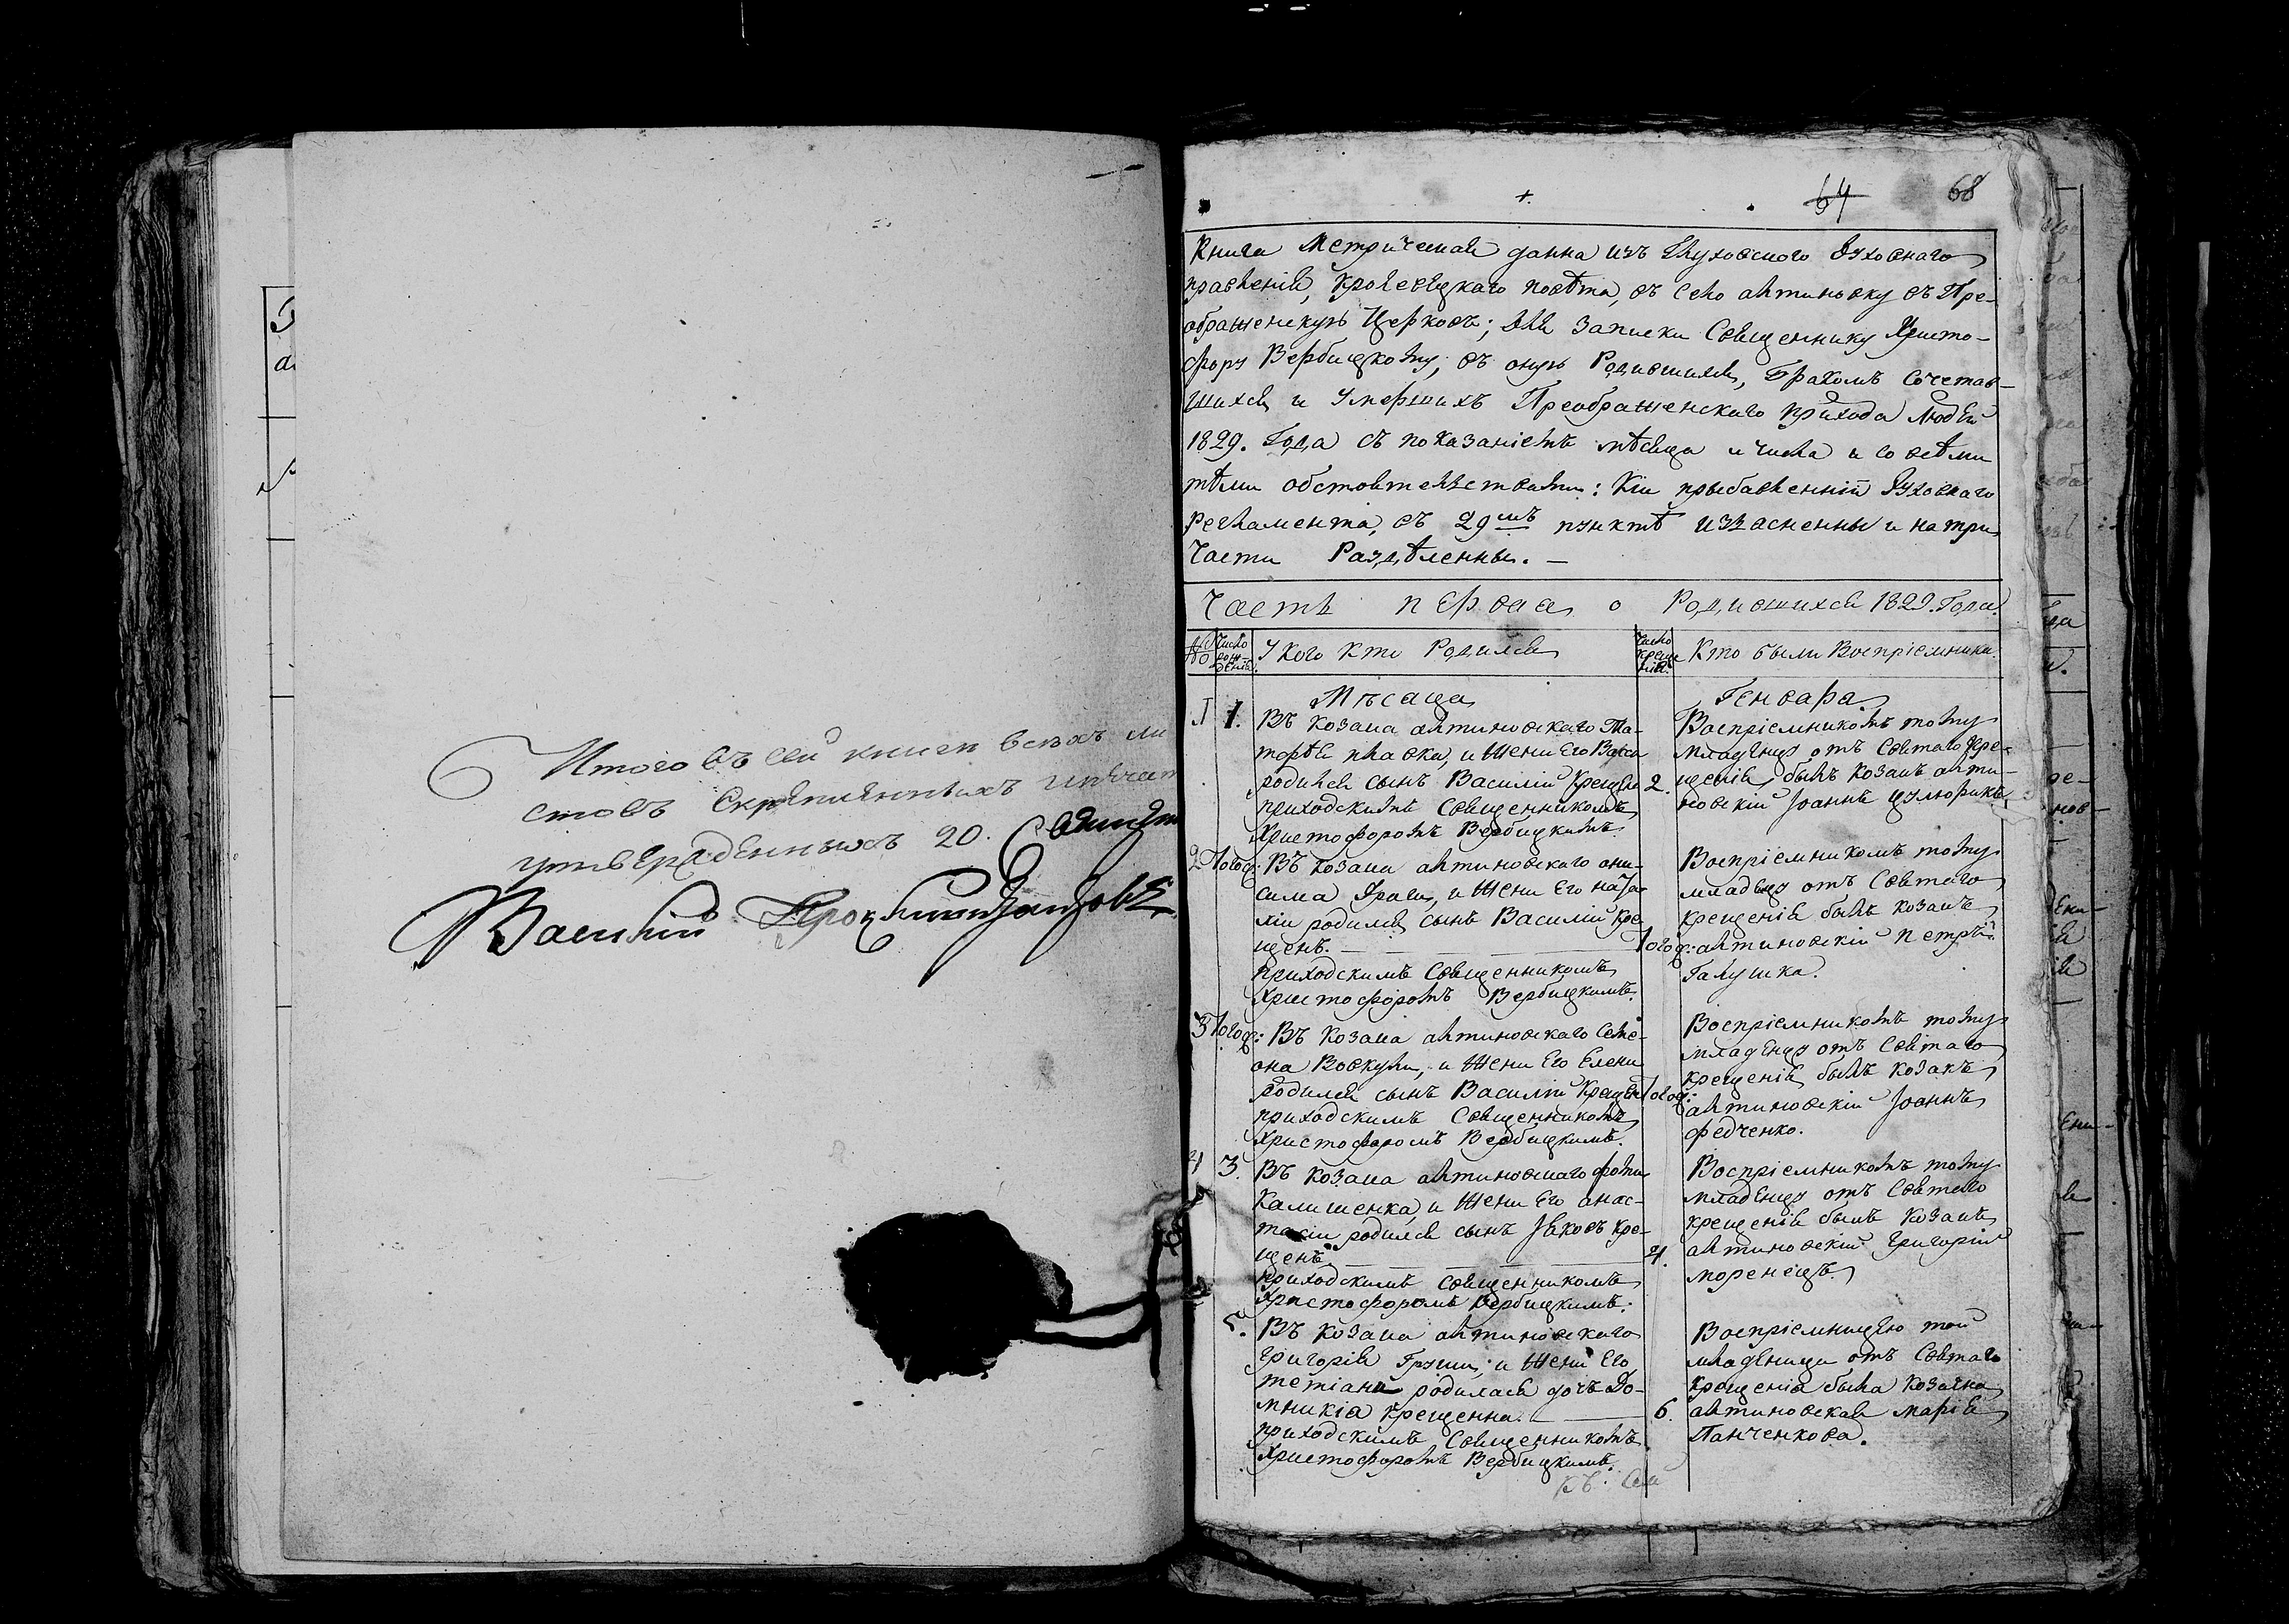 Итого въ сей книги всѣхъ ли
стовъ Скрѣпленныхъ и печат
утвержденныхъ 20. Священ
Василий
64 68
Книга Метрическая данна изъ Глуховского Духовнаго
правленія, Кролевецкаго повѣта, въ село Алтиновку въ Пре-
ображенскую Церковъ; для записки Священнику Христо-
фору Вербицкому, въ оную Родившихся, Бракомъ Сочетав-
шихся и Умершихъ Преображенскаго прихода Людей
1829. Года съ показаніемъ мѣсяца и числа и со всѣми
тѣми обстоятелствами: Кіи прыбавленній Духовнаго
Регламента, въ 29мъ пунктѣ изъяснены и на три
Части Раздѣленны. —
Часть первая о Родившихся 1829. Года.
№ Число рожденія У кого кто Родился Число крещенія Кто были Воспріемники.
Мѣсаца Генвара
1 1. Въ козака алтиновскаго Ма-
твѣя плавка, и жени Его Васса
родился сынъ Василій Крещенъ 2.
приходскимъ Священникомъ
Христофоромъ Вербицкимъ.
Воспріемникомъ тому
младенцу отъ Святаго Кре-
щенія, былъ козакъ алти-
новскій Іоаннъ Цулюрикъ
2 Тогож: Въ козака алтиновскаго они-
сима Драги, и жени Его ната-
ліи родился сынъ Василій кре-
щенъ. — Тогож:
приходскимъ Священникомъ
Христофоромъ Вербицкимъ.
Воспріемникомъ тому
младенцу отъ Святаго
крещенія былъ козакъ
алтиновскій петръ
Галушка.
3 Тогож: Въ козака алтиновскаго Семе-
она Вовкули, и жени Его Елени
родился сынъ Василій Крещенъ Тогож:
приходскимъ Священникомъ
Христофоромъ Вербицкимъ.
Воспріемникомъ тому
младенцу отъ Святаго
крещенія, былъ козакъ
алтиновскій Іоаннъ
федченко.
4 3. Въ козака алтиновскаго фоми
Калишенка, и жени Его анас-
тасіи родился сынъ Іаковъ кре-
щенъ — 4.
приходскимъ Священникомъ
Христофоромъ Вербицкимъ.
Воспріемникомъ тому
младенцу отъ Святаго
крещенія былъ козакъ
алтиновскій Григорій
моренецъ.
5. Въ козака алтиновскаго
Григорія Груши, и жени Его
тетіани родилася дочъ До-
мникіа крещенна. — 6.
приходскимъ Священникомъ
Христофоромъ Вербицкимъ.
Воспріемницею той
младеницы отъ Святаго
крещеніа была козачка
алтиновская маріа
Панченкова.
Къ. Сей